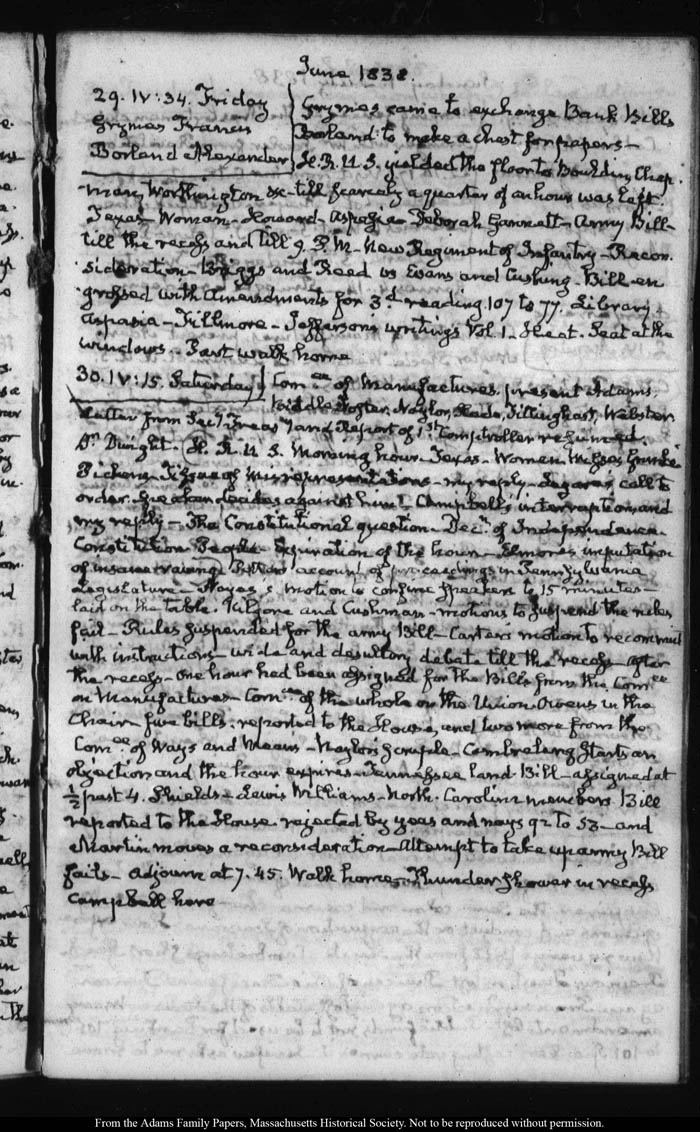 June 1838.
29. IV:34. Friday
Grymes Francis
Borland Alexander
Grymes came to exchange Bank Bills
Borland to make a chest for papers—
H. R. U. S. yielded the floor to Bouldin, Chap-
man, Worthington &c till scarcely a quarter of an hour was left.
Texas—Woman—Howard—Aspasia—Deborah Gannett—Army Bill—
till the recess and till 9. P.M—New Regiment of Infantry—Recon-
sideration—Briggs and Reed vs Evans and Cushing—Bill en-
grossed with amendments for 3d reading 107 to 77. Library
Aspasia—Fillmore—Jefferson's writings Vol 1. Heat. Seat at the
windows. Part walk home
30. IV:15. Saturday
Comee of Manufactures. present Adams,
Biddle, Foster, Naylor, Slade, Tillinghast, Webster
Letter from Secy Treasy and Report of 1st Comptroller returned.
Dr Dwight. H. R. U. S. Morning hour. Texas—Women, Misses
Pickens misrepresentations—my reply—Legare's call to
order. Speaker decides against him—Campbell's interruption and
my reply—The Constitutional question—Decn of Independence—
Constitution People—Expiration of the hour—Elmore's imputation
of insane raving Potter's account of proceedings in Pennsylvania
Legislature—Haynes's motion to confine speakers to 15 minutes—
laid on the table. Kilgore and Cushman—motions to suspend the rules
fail—Rules suspended for the army Bill—Carter's motion to recommit
with instructions—wide and desultory debate till the recess—After
the recess—one hour had been assigned for the Bills from the Comee
on Manufactures—Comee of the whole on the Union. Owens in the
Chair—five bills, reported to the House, and two more from the
Comee of Ways and Means—Naylor's scruple—Cambreleng starts an
objection and the hour expires—Tennessee land Bill—assigned at
½ past 4. Shields—Lewis Williams—North Carolina members Bill
reported to the House. rejected by yeas and nays 92 to 53—and
Martin moves a reconsideration—Attempt to take up army Bill
fails—adjourn at 7.45. Walk home—Thunder shower in recess
Campbell here
From the Adams Family Papers, Massachusetts Historical Society. Not to be reproduced without permission.